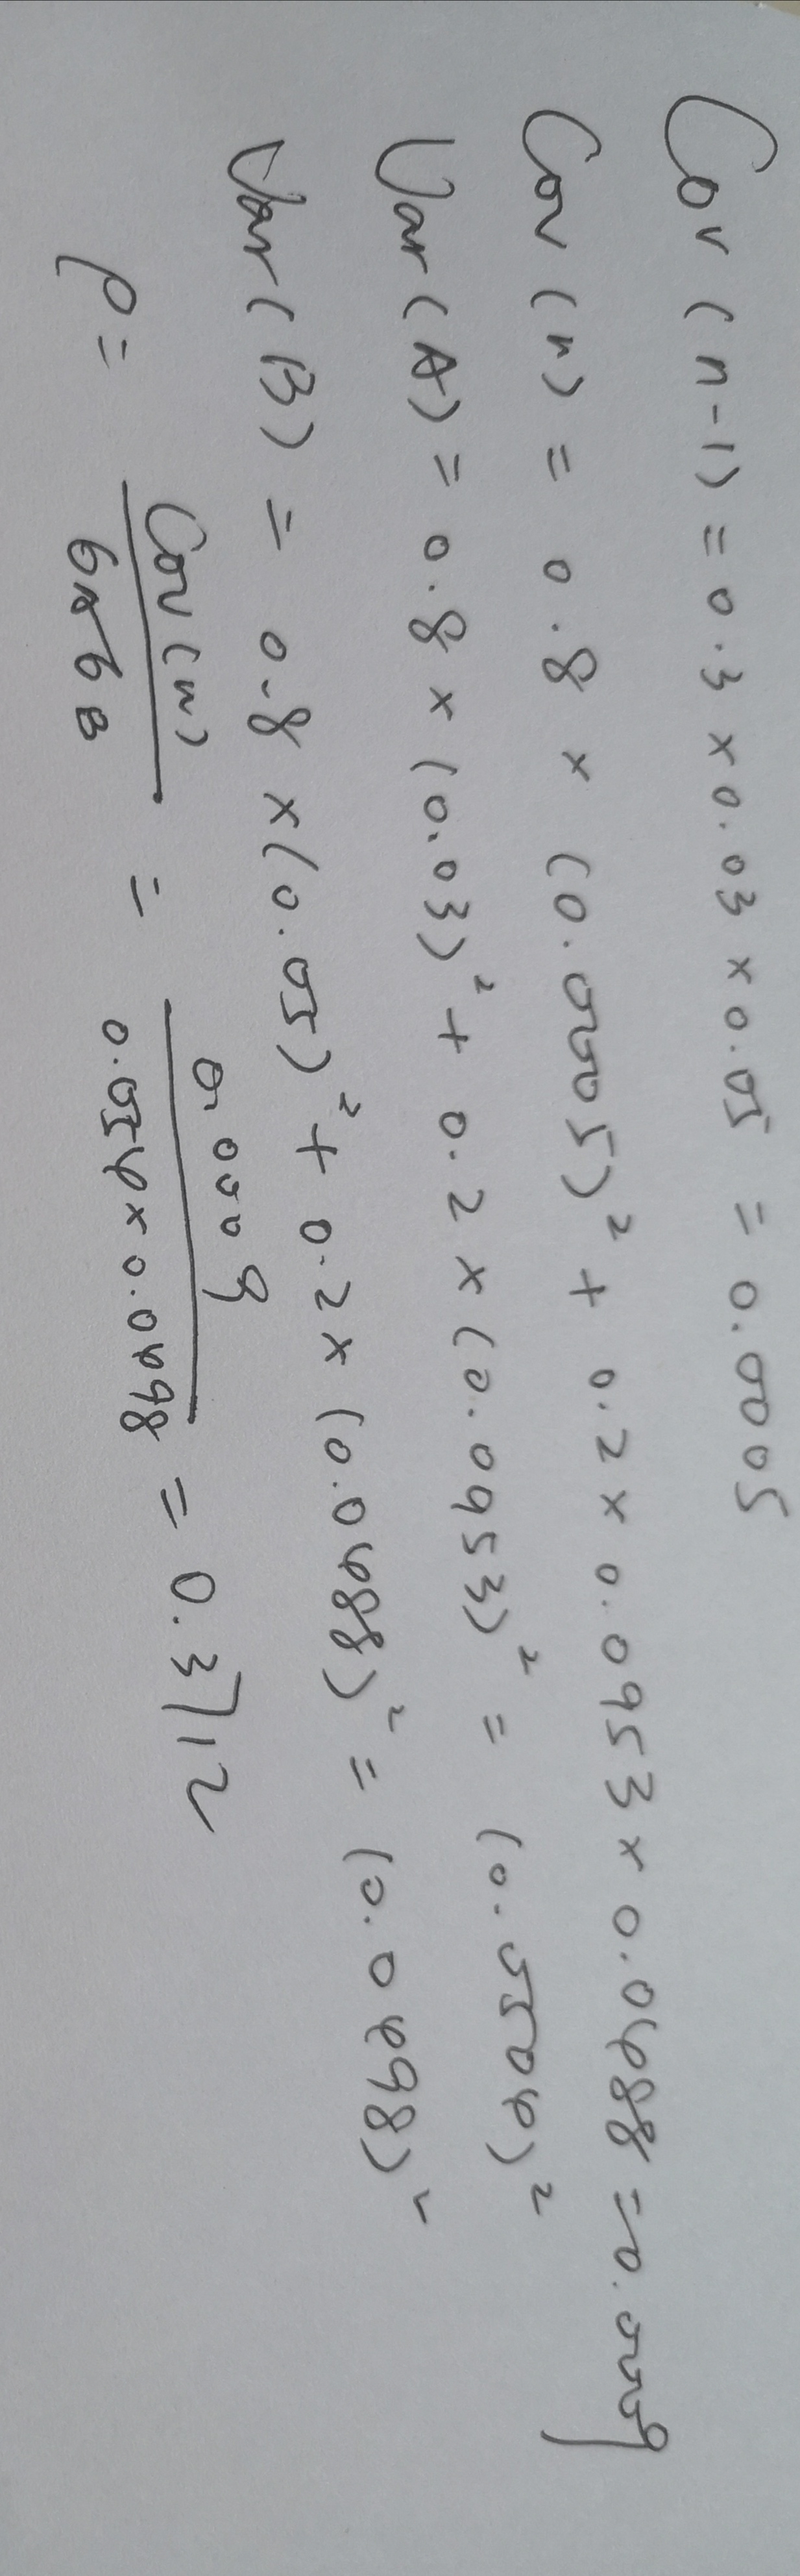 Cov (n-1) = 0.3 × 0.03 × 0.05 = 0.0005
Cov (n) = 0.8 × (0.0005)² + 0.2 × 0.0953 × 0.0488 = 0.0009
Var (A) = 0.8 × (0.03)² + 0.2 × (0.0953)² = (0.0504)²
Var (B) = 0.8 × (0.05)² + 0.2 × (0.0488)² = (0.0498)²
ρ = Cov (n) / σA σB = 0.0009 / 0.054 × 0.0498 = 0.3712